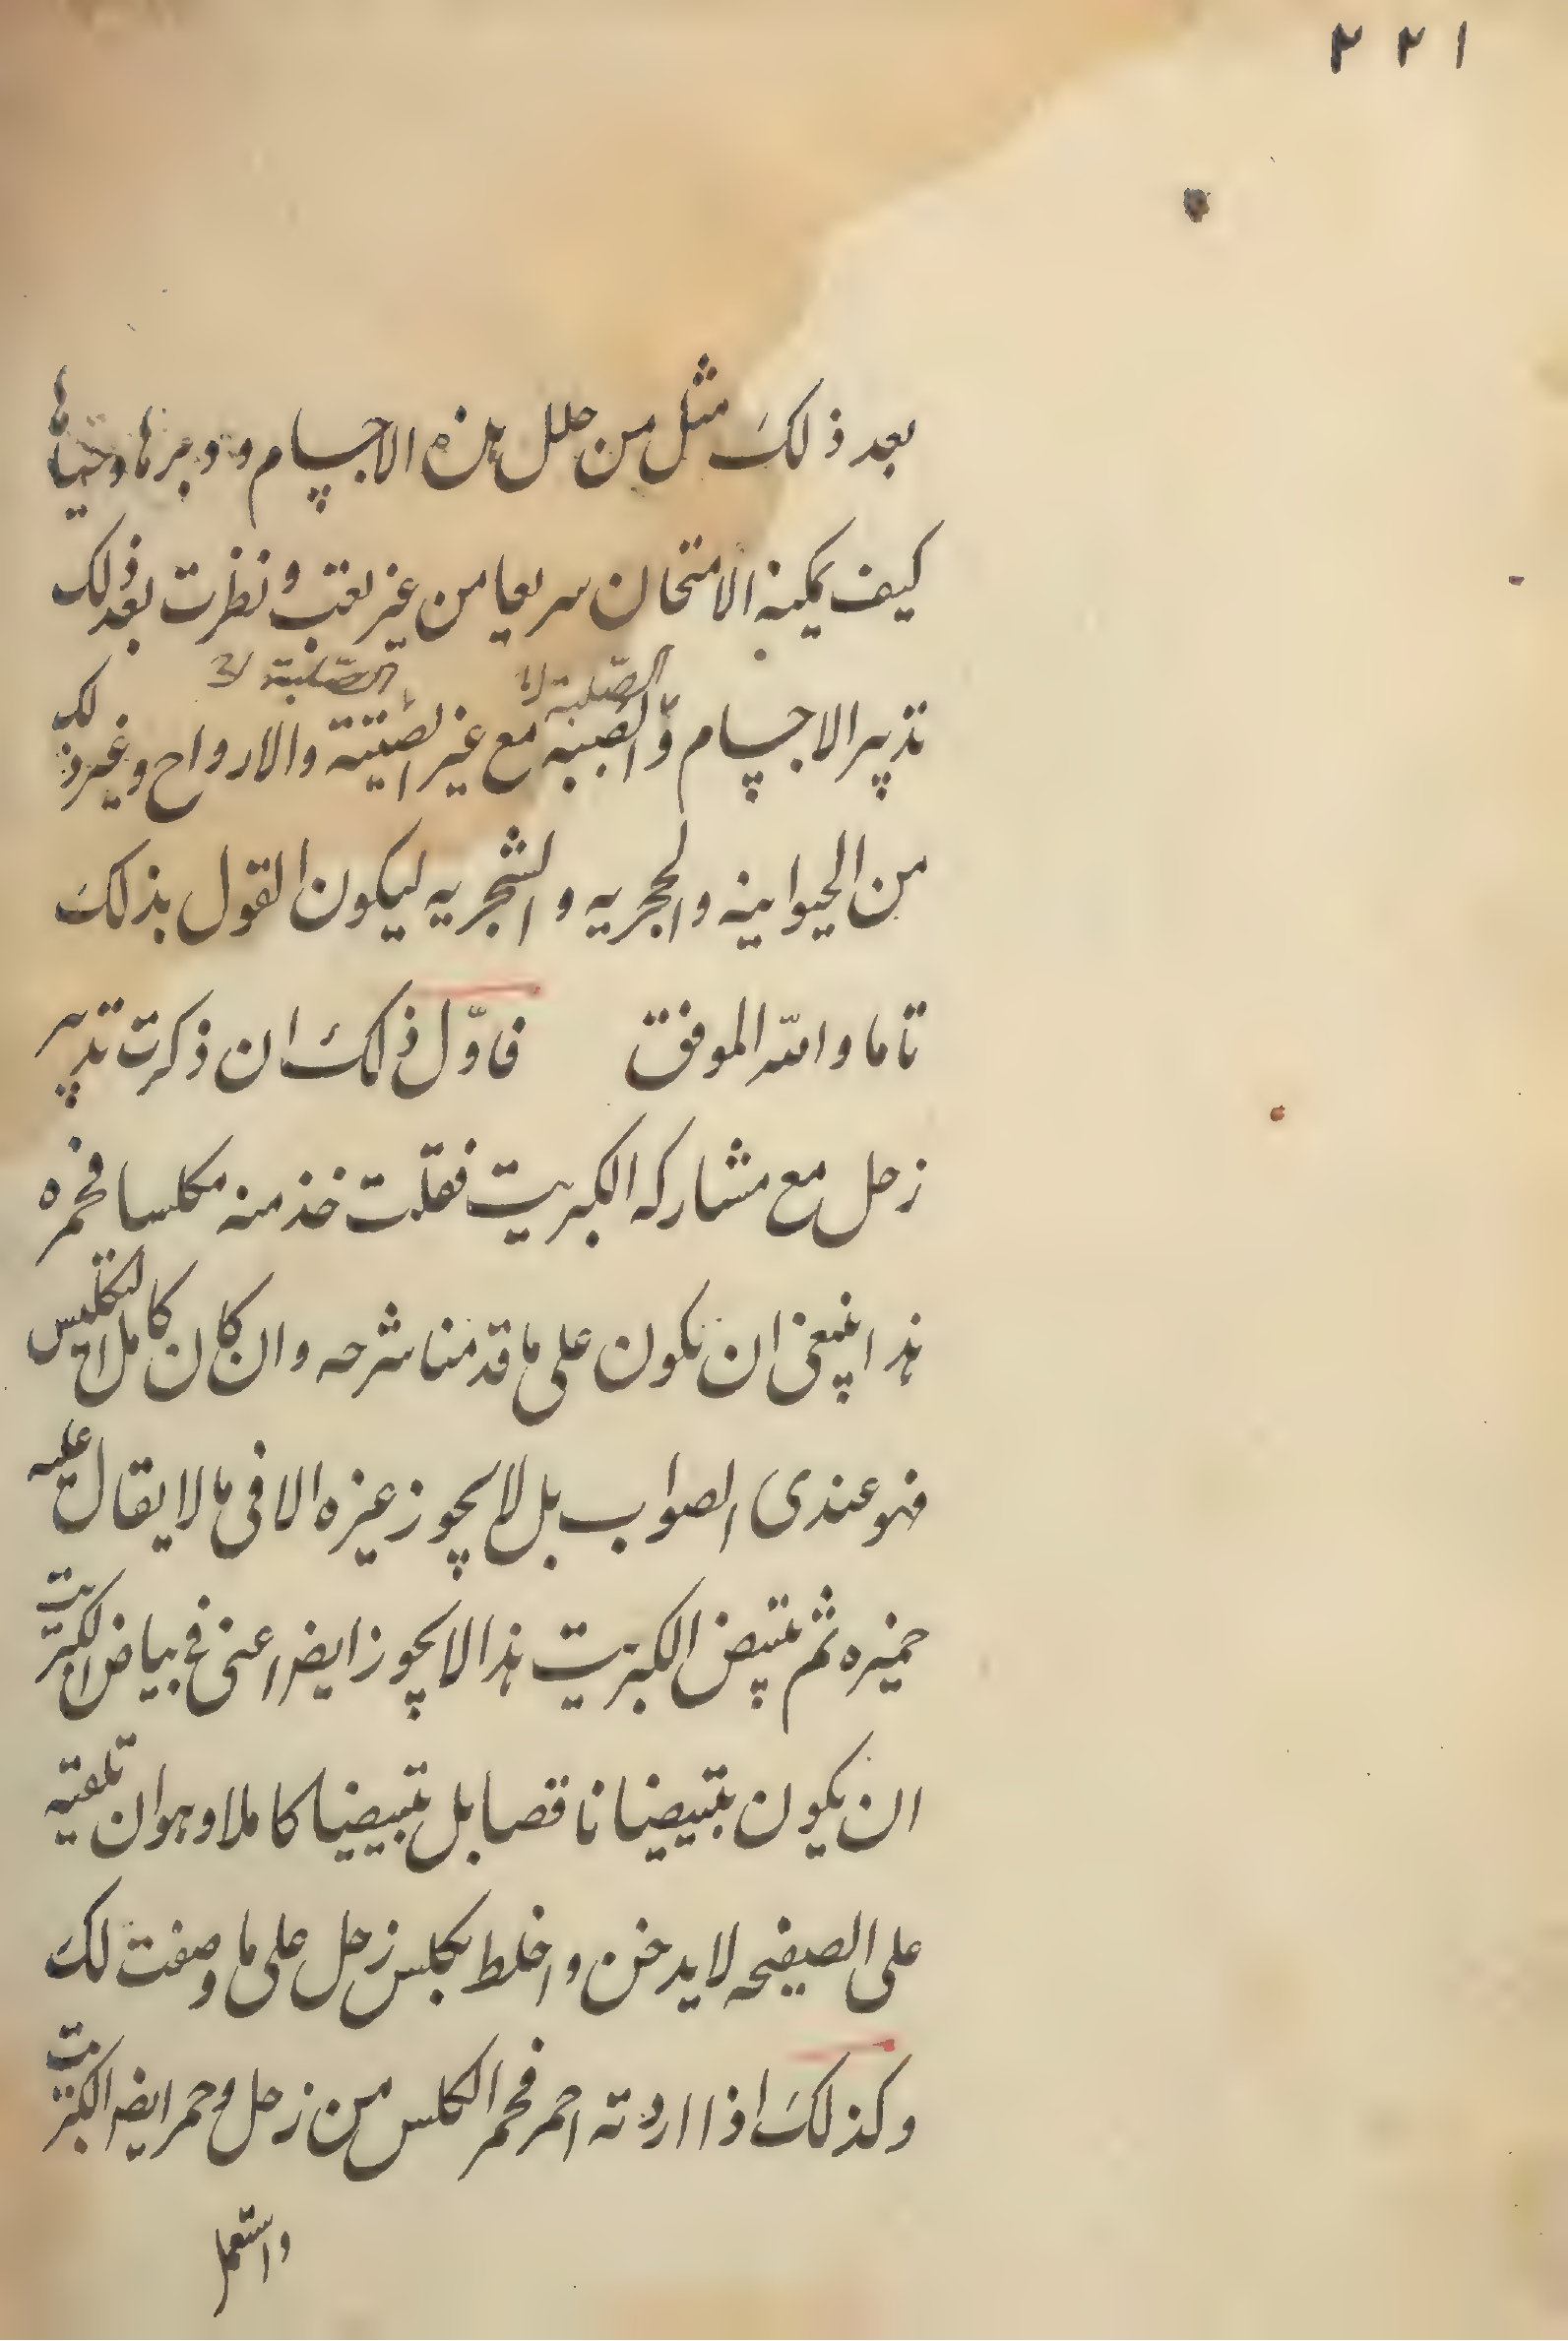 ٢٢١
بعد ذلك مثل من حلل هذه الاجسام ودبرها وحياها
كيف يمكنه الامتحان سريعا من غير تعب ونظرت بعد ذلك
الصلبة الصلبة
تدبير الاجسام والصبنه مع غير الصيتة والارواح وغير ذلك
من الحيوانيه والحجريه والشجريه ليكون القول بذلك
تاما والله الموفق فاوّل ذلك ان ذكرت تدبير
زحل مع مشاركه الكبريت فقلت خذ منه مكلسا فخمره
هذا ينبغى ان يكون على ما قدمنا شرحه وان كان كامل التكليس
فهو عندى الصواب بل لا يجوز غيره الا فى ما لا يقال عليه
خميره ثم تبيض الكبريت هذا لا يجوز ايضا عنى فى بياض الكبريت
ان يكون بتبيضا ناقصا بل تبييضا كاملا وهو ان تلقيه
على الصفيحه لا يدخن واخلط بكلس زحل على ما وصفت لك
وكذلك اذا اردته احمر فحمر الكلس من زحل وحمر ايضا الكبريت
واستعمل